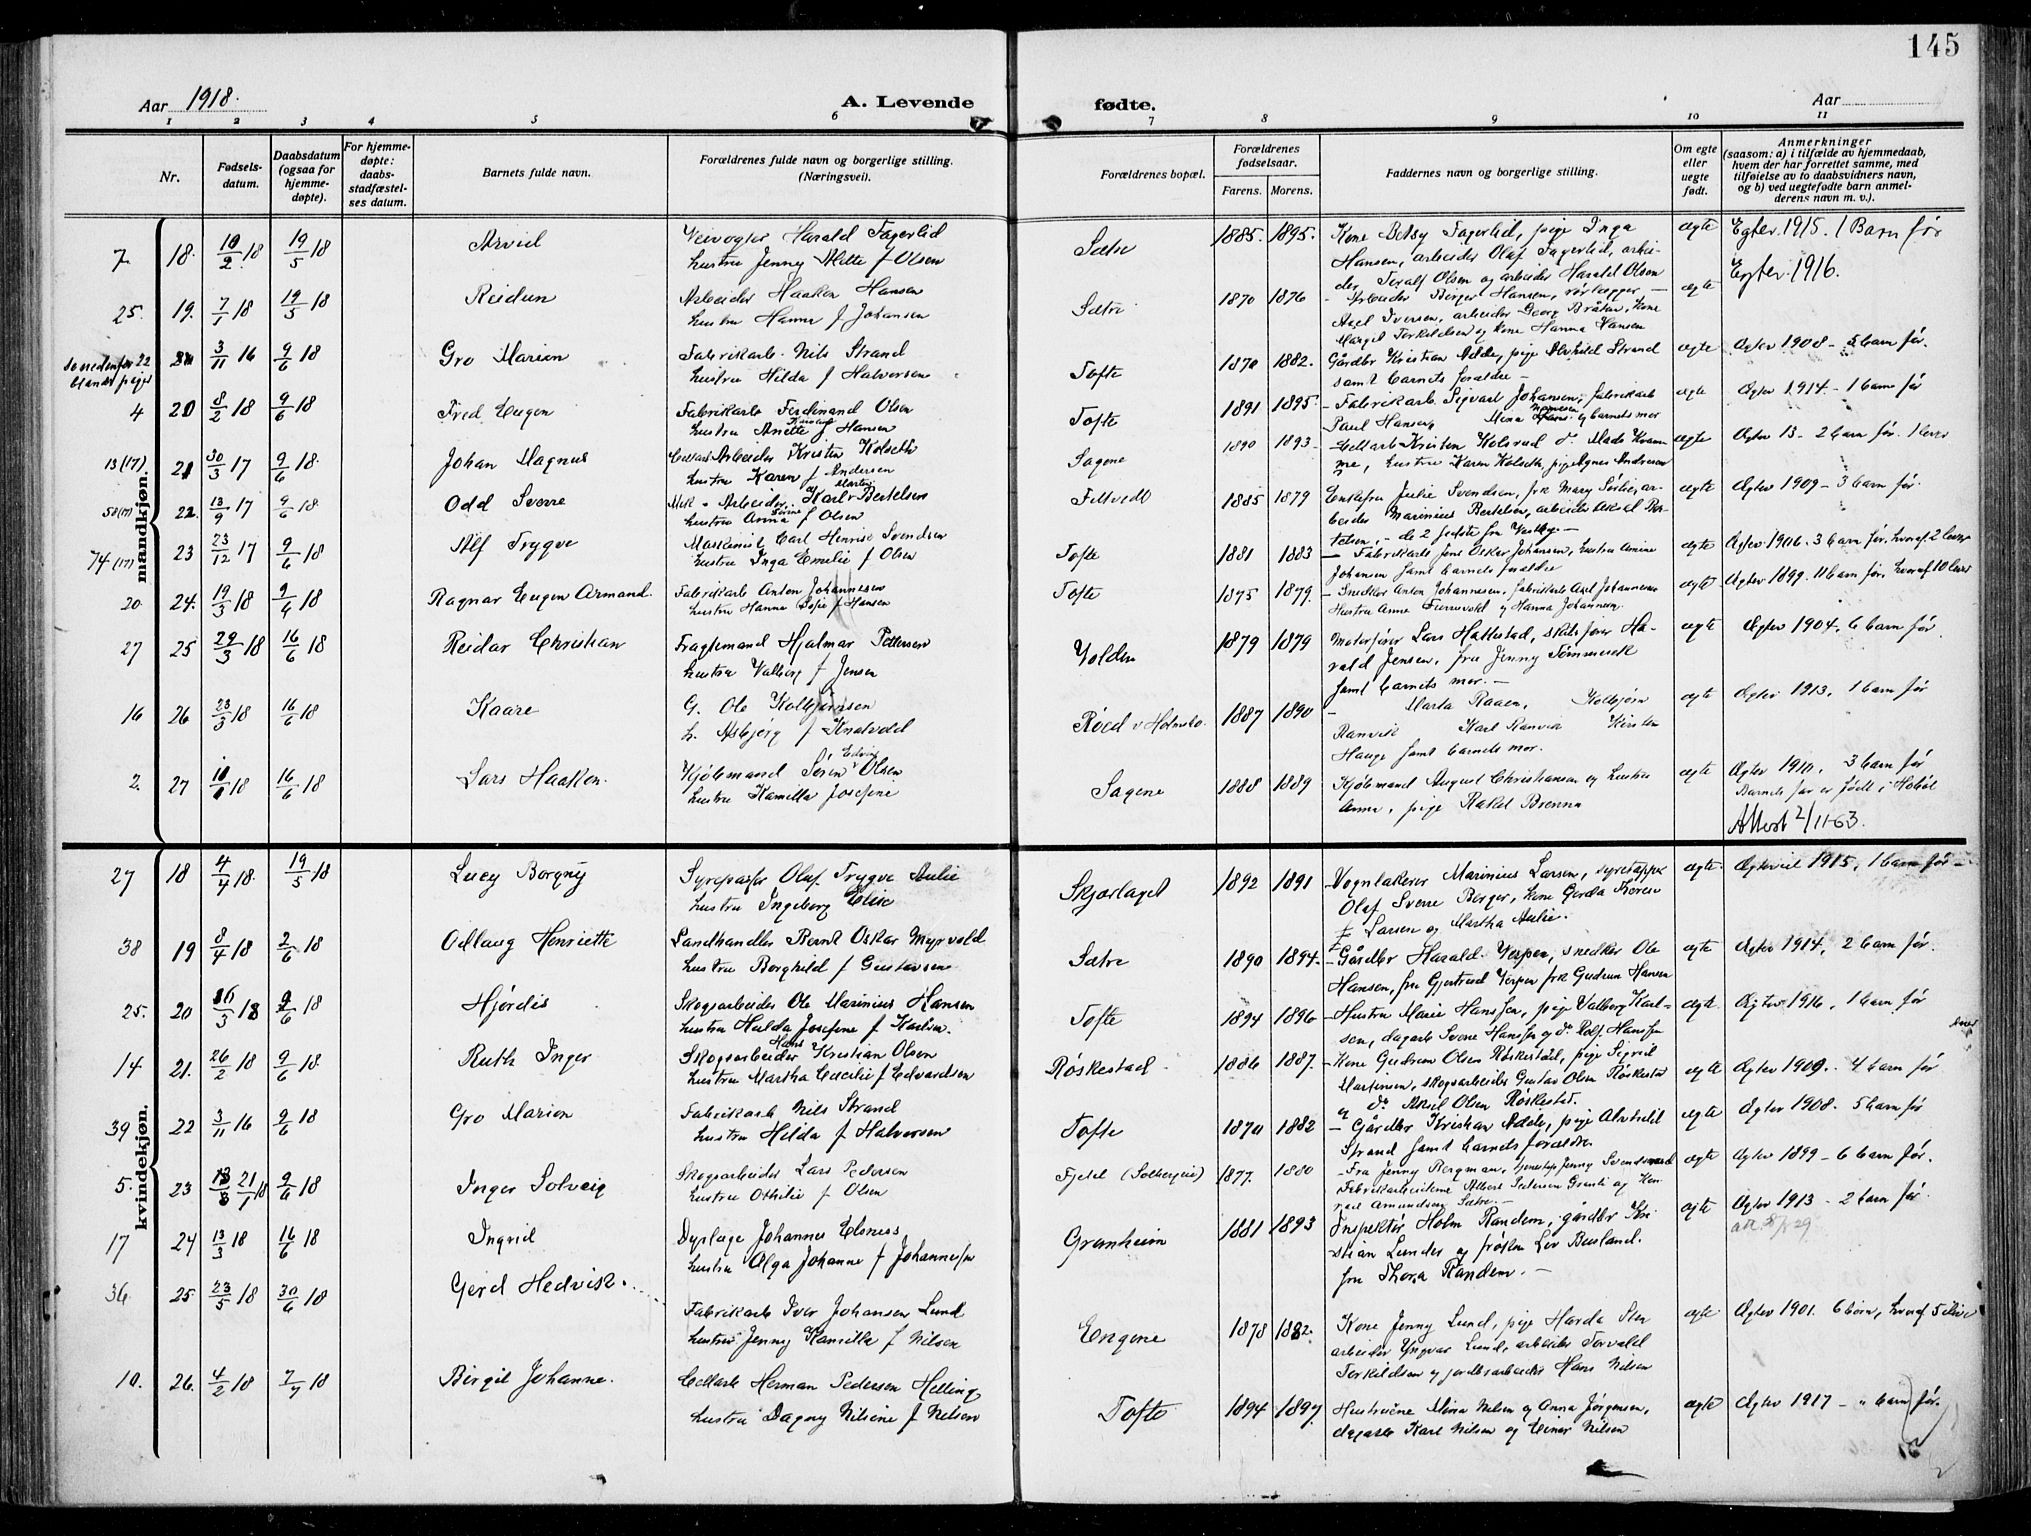 145
Aar 1918.
A. Levende fødte.
Aar
1 2 3 4 5 6 7 8 9 10 11
Nr.
Fødsels-datum.
Daabsdatum (ogsaa for hjemme-døpte).
For hjemme-døpte: daabs-stadfæstel-ses datum.
Barnets fulde navn.
Forældrenes fulde navn og borgerlige stilling. (Næringsvei).
Forældrenes bopæl.
Forældrenes fødselsaar.
Farens. Morens.
Faddernes navn og borgerlige stilling.
Om egte eller uegte født.
Anmerkninger (saasom: a) i tilfælde av hjemmedaab, hvem der har forrettet samme, med tilføielse av to daabsvidners navn, og b) ved uegtefødte barn anmel-derens navn m. v.).
mandkjøn.
7 18. 10/2 18 19/5 18 Arvid Veivogter Harald Fagerlid Sætre 1885. 1895. Kone Betsy Fagerlid, pige Inga ægte Egtev. 1915. 1 Barn før
hustru Jenny Mette f Olsen Hansen, arbeider Olaf Fagerlid, arbei-
der Toralf Olsen og arbeider Harald Olsen
25. 19. 7/1 18 19/5 18 Reidun Arbeider Haaken Hansen Sætre 1870 1876 - Arbeider Birger Hansen, rørlægger ægte Egtev. 1916.
hustru Hanna f Johansen Axel Iversen, arbeider Georg Bråten, Kone
Margit Torkildsen og Kone Hanna Hansen
se nedenfor 22 blandt piger 3/11 16 9/6 18 Gro Marion Fabrikarb. Nils Strand Tofte 1870 1882. Gårdbr Kristian Adde, pige Alvhild Strand ægte Ægtev 1908 - 5 barn før.
hustru Hilda f Halvorsen samt barnets forældre -
4 20 8/2 18 9/6 18 Fred Eugen Fabrikarb Ferdinand Olsen Tofte 1891 1895 - Fabrikarb. Sigvart Johansen, fabrikarb ægte Ægtev 1914 - 1 barn før
hustru Anette f Hansen Paul Hansen, Mina Hans. og barnets mor
13 (17) 21 30/3 17 9/6 18. Johan Magnus Arbeider Kristen Kolseth Sagene 1890 1893 - Kristen Kolsrud ægte Ægtev 13 - 2 barn før. 1 lever
hustru Karen f Andersen hustru Karen Kolseth, pige Agnes Andresen
58 (17) 22. 13/9 17 9/6 18. Odd Sverre Arbeider Karl Bertelsen Filtvedt 1885 1879 Enkefru Julie Svendsen, frk Mary Sørlie, ar- ægte Ægtev 1909 - 3 barn før.
hustru Anna f Olsen beider Marinius Bertelsen, arbeider Aksel Ber-
telsen, - de 2 sidste fra Vestby. -
74 (17) 23 23/12 17 9/6 18 Alf Trygve Maskinist Carl Henrik Svendsen Tofte 1881 1883 - Fabrikarb Oskar Johansen, hustru Amine ægte Ægtev. 1906. 3 barn før. hvoraf 2 lever
hustru Inga Emelie f Olsen Johansen samt barnets forældre
20. 24. 19/3 18 9/6 18 Ragnar Eugen Armand. Fabrikarb Anton Johannesen Tofte 1875 1879. - Snedker Anton Johannesen, fabrikarb Axel Johannesen ægte Ægtev 1899. 11 barn før, hvoraf 10 lever
hustru Hanna Sofie f Hansen Hustru Anne og Hanna Johannesen.
27 25 29/3 18 16/6 18 Reidar Christian Fragtemand Hjalmar Pettersen Volden 1879 1879 Motorfører Lars Hallestad, skibsfører Ha- ægte Ægtev 1904. 6 barn før
hustru Valborg f Jensen rald Jensen, fru Jenny
samt barnets mor. -
16 26 23/3 18 16/6 18 Kaare G. Ole Kolbjørnsen Røed v Holmsbo. 1887 1890 - Marta Raaen, Kolbjørn ægte Ægtev 1913. 1 barn før
h. Asbjørg f Knatvold Ranvik Karl Ranvik Kirsten
Hauge samt barnets mor.
2. 27 11/1 18 16/6 18 Lars Haaken. Kjøbmand Søren Edvin Olsen Sagene 1888 1889 Kjøbmand August Christiansen og hustru ægte Ægtev 1910. 3 barn før
hustru Kamilla Josefine Anna, pige Rakel Brenna Barnets far er født i Hobøl
Attest 2/11-63.
kvindekjøn.
27 18 4/4 18. 19/5 18 Lucy Borgny Syrepasser Olaf Trygve Aulie Skjærlaget 1892 1891 - Vognlakerer Marinius Larsen, syretapper ægte Ægteviet 1915, 1 barn før -
hustru Ingeborg Elise Olaf Sverre Berger, kone Gerda Therese
f Larsen og Martha Aulie.
38 19 8/4 18 2/6 18 Odlaug Henriette Landhandler Bernt Oskar Myrvold Sætre 1890 1894 - Gårdbr Harald Vesper, snedker Ole ægte Ægtev 1914, 2 barn før.
hustru Borghild f Gustavsen Hansen, fru Gjertrud Vesper frk Gudrun Hansen
25. 20 16/3 18 9/6 18 Hjørdis Skogsarbeider Ole Marinius Hansen Tofte 1894 1896 - Hustru Marie Hanssen, pige Valborg Karl- ægte Ægtev. 1916, 1 barn før
hustru Hulda Josefine f Karlsen. sen, dagarb Sverre Hanssen og do Rolf Hanssen
14 21. 26/2 18 9/6 18. Ruth Inger Skogsarbeider Hans Kristian Olsen Røskestad. 1886 1887. - Kone Gudrun Olsen Røskestad, pige Sigrid ægte Ægtev 1909. 4 barn før
hustru Martha Cecilie f Edvardsen Martinsen, skogsarbeider Gustav Olsen Røskestad
og do Aksel Olsen Røskestad.
39 22 3/11 16 9/6 18 Gro Marion Fabrikarb Nils Strand Tofte 1870 1882 - Gårdbr Kristian Adde, pige Alvhild ægte Ægtev 1908. 5 barn før
hustru Hilda f Halvorsen Strand samt barnets forældre
5. 23 21/1 18 9/6 18 Inger Solveig Skogsarbeider Lars Pedersen Fjeld (Solbergeie) 1877. 1880 - Fru Jenny Bergman, tjenestepige Jenny Svendsrud ægte Ægtev 1899 - 6 barn før.
hustru Othilie f Olsen Fabrikarbeiderne Albert Pedersen Grønli og Kon-
rad Amundsen Sætre. -
17 24 13/3 18 16/6 18 Ingrid Dyrlæge Johannes Elsness Granheim 1881 1893 Inspektør Holm Randem, gårdbr Kri- ægte Ægtev 1913 - 2 barn før.
hustru Olga Johanne f Johannessen stian Lunder og frøken Liv Busland.
fru Thora Randem. -
36 25 23/5 18 30/6 18 Gerd Hedvik. Fabrikarb Iver Johansen Lund Engene 1878 1882. Kone Jenny Lund, pige Harda ægte Ægtev 1901. 6 børn, hvoraf 5 ilive
hustru Jenny Kamilla f Nilsen arbeider Yngvar Lund, arbeider Torvald
Torkildsen og jordbrarbeider Hans Nilsen
10. 26. 4/2 18 7/7 18 Birgit Johanne. Cellarb Herman Pedersen Helling Tofte 1894 1897. Hustruerne Mina Nilsen og Anna Jørgensen, ægte Ægtev 1917 - " barn før.
hustru Dagny Nilsine f Nilsen dagarb Karl Nilsen og Einar Nilsen